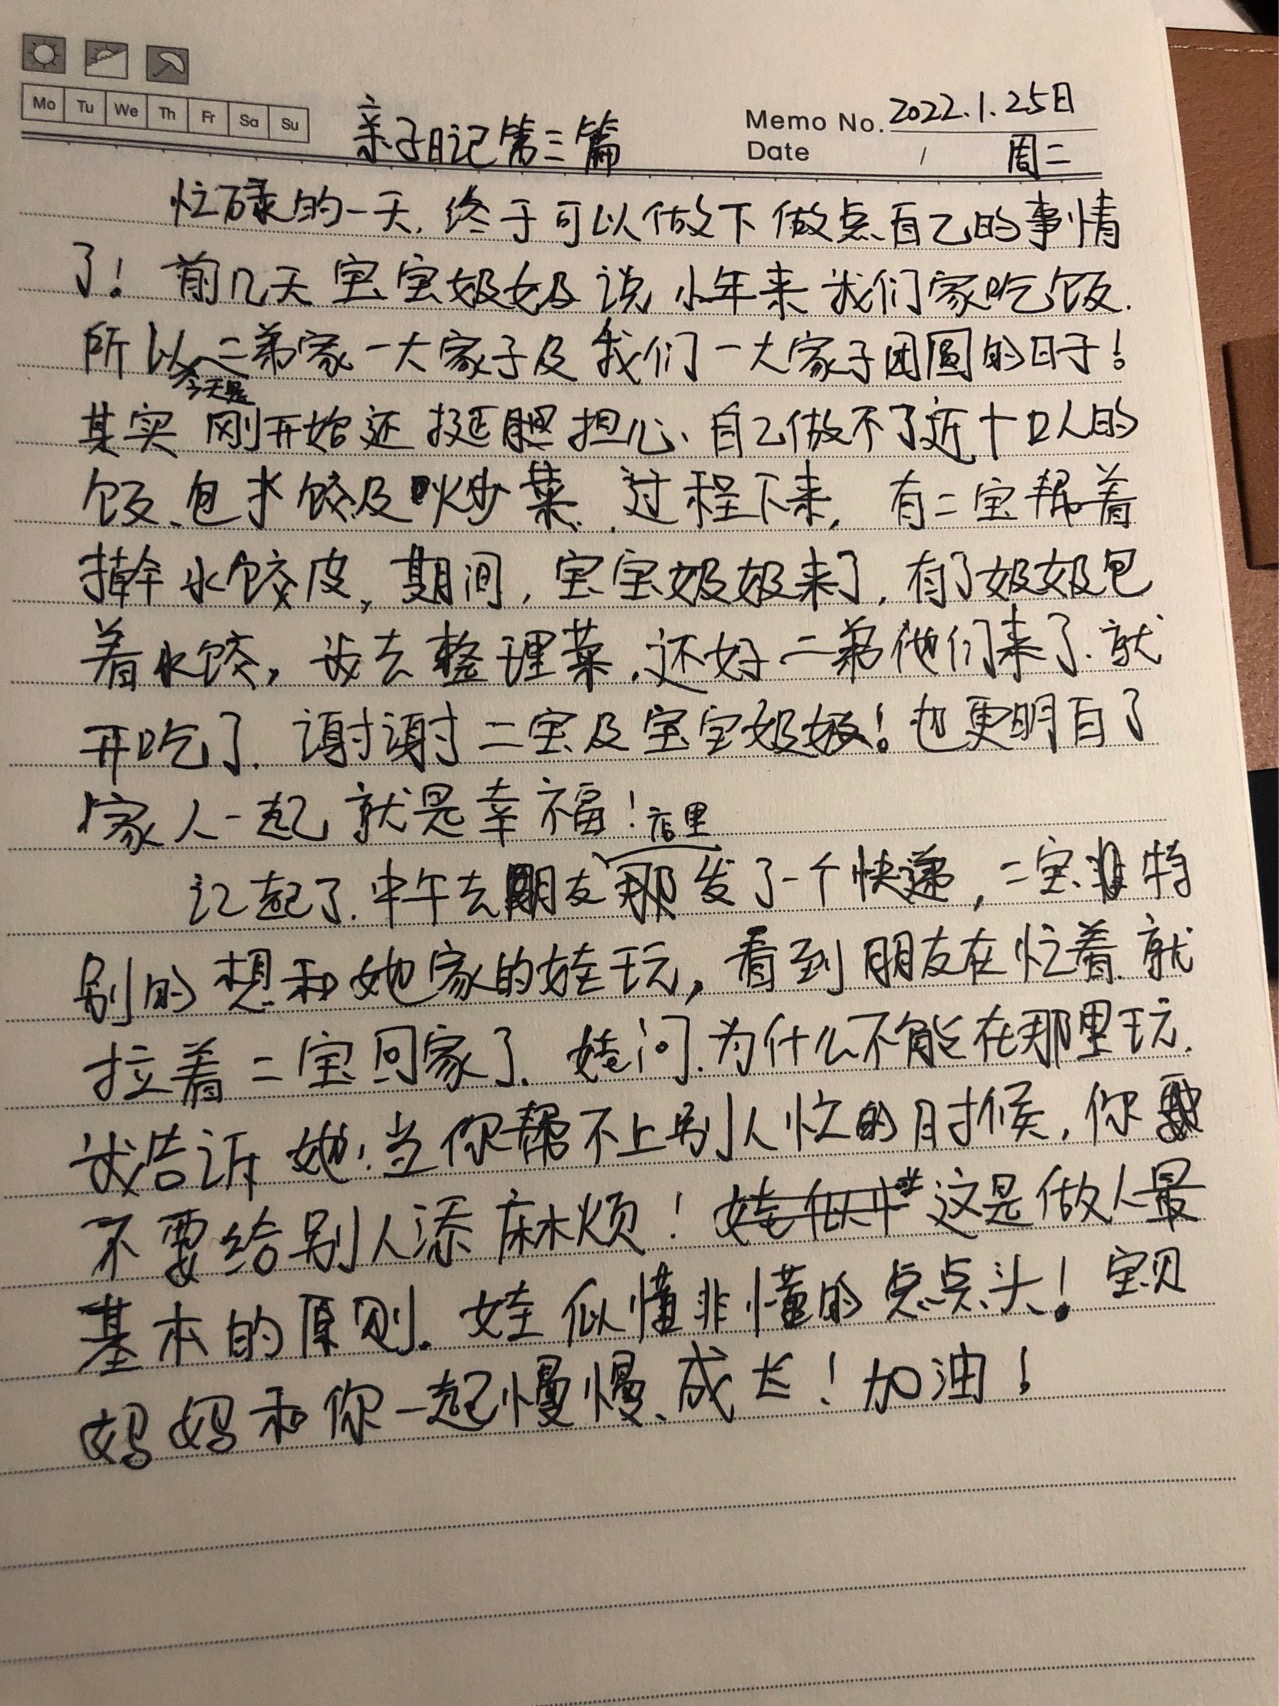 Mo Tu We Th Fr Sa Su
亲子日记第三篇
Memo No. 2022.1.25日
Date / 周二
忙碌的一天,终于可以做下做点自己的事情
了!前几天宝宝奶奶说小年来我们家吃饭.
所以今天是二弟家一大家子及我们一大家子团圆的日子!
其实刚开始还挺胆担心、自己做不了近十口人的
饭、包水饺及炒菜.过程下来,有二宝帮着
擀水饺皮,期间,宝宝奶奶来了,有了奶奶包
着水饺,我去整理菜,还好二弟他们来了.就
开吃了.谢谢二宝及宝宝奶奶!也更明白了
家人一起就是幸福!
记起了.中午去朋友店里那发了一个快递,二宝非特
别的想和她家的娃玩,看到朋友在忙着.就
拉着二宝回家了.娃问.为什么不能在那里玩.
我告诉她:当你帮不上别人忙的时候,你
不要给别人添麻烦!这是做人最
基本的原则.娃似懂非懂的点点头!宝贝
妈妈和你一起慢慢成长!加油!